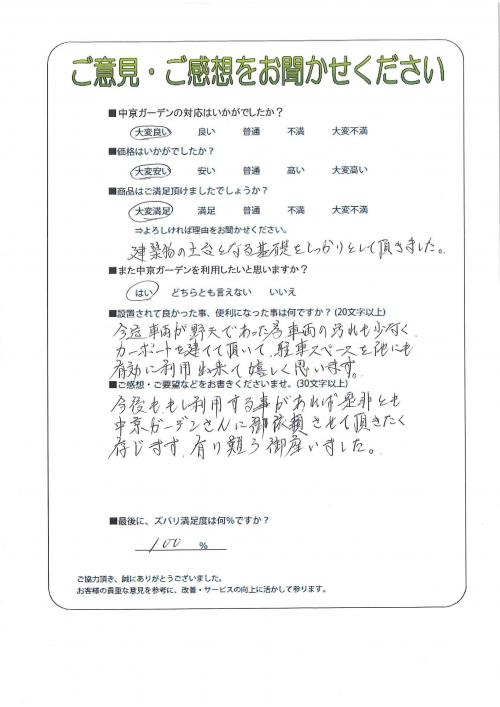 ご意見・ご感想をお聞かせください
■中京ガーデンの対応はいかがでしたか？
大変良い 良い 普通 不満 大変不満
■価格はいかがでしたか？
大変安い 安い 普通 高い 大変高い
■商品はご満足頂けましたでしょうか？
大変満足 満足 普通 不満 大変不満
⇒よろしければ理由をお聞かせください。
建築物の土台となる基礎をしっかりとして頂きました。
■また中京ガーデンを利用したいと思いますか？
はい どちらとも言えない いいえ
■設置されて良かった事、便利になった事は何ですか？ (20文字以上)
今迄車両が野天であった為車両の汚れも少なく、
カーポートを建てて頂いて、駐車スペースを他にも
有効に利用出来て嬉しく思います。
■ご感想・ご要望などをお書きくださいませ。(30文字以上)
今後ももし利用する事があれば是非とも
中京ガーデンさんに御依頼させて頂きたく
存じます。有り難う御座いました。
■最後に、ズバリ満足度は何％ですか？
100 ％
ご協力頂き、誠にありがとうございました。
お客様の貴重な意見を参考に、改善・サービスの向上に活かして参ります。